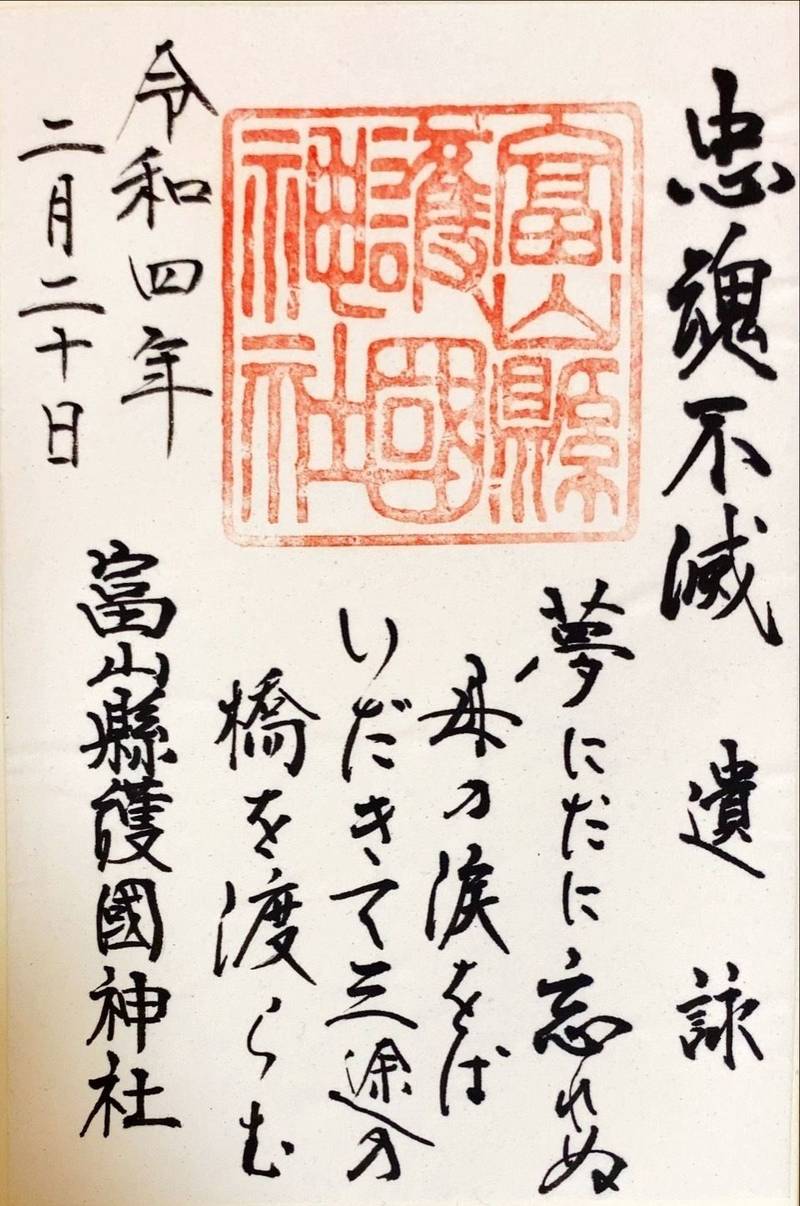 忠魂不滅
遺詠
夢にだに忘れぬ
母の涙をば
いだきて三途の
橋を渡らむ
富山縣護國神社
令和四年
二月二十日
富山縣護國神社